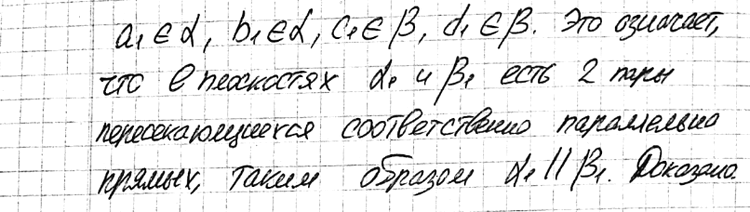 a₁ ∈ α, b₁ ∈ α, c₁ ∈ β, d₁ ∈ β. Это означает,
что в плоскостях α₁ и β₁ есть 2 пары
пересекающиеся соответственно параллельно
прямых, таким образом α₁ || β₁. Доказано.